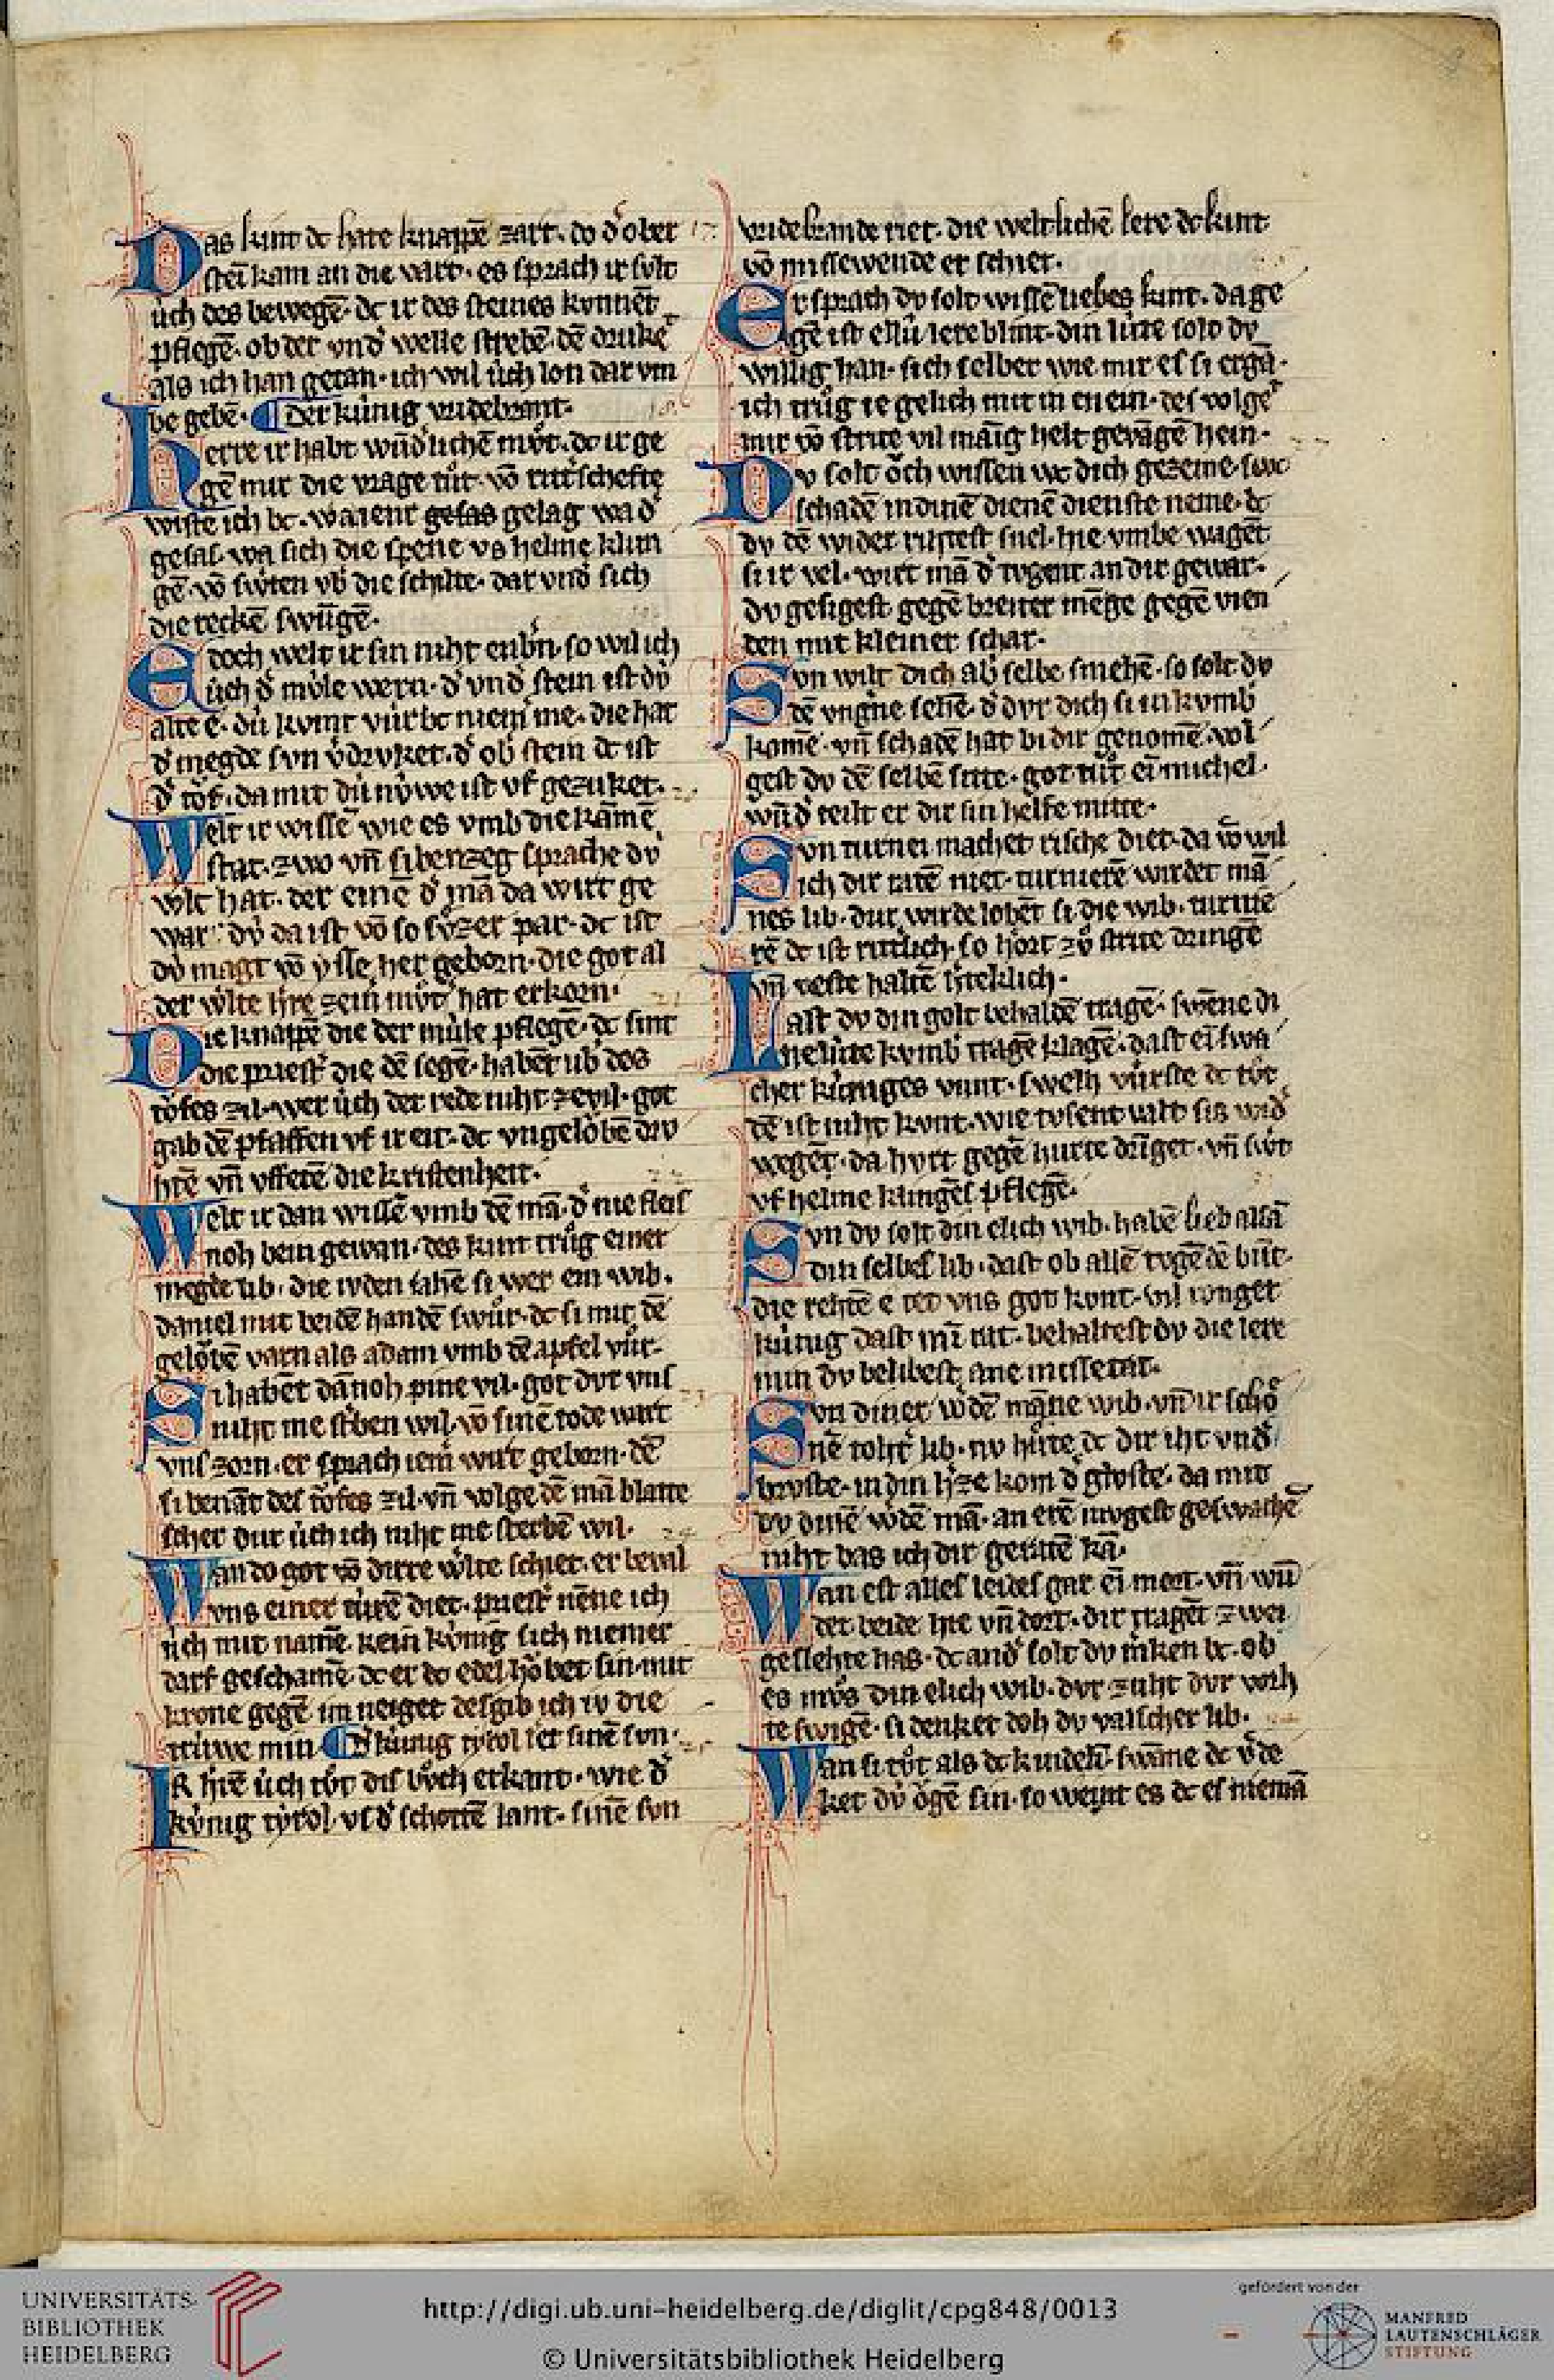 Das kint dc hate knappē zart. do d͛ ober
stei kam an die vart. es sprach ir sult
úch des bewegē. dc ir des steines kvnnēt
pflegē. ob der vnd͛ welle strebē. dē druke
als ich han getan. ich wil úch lon dar vm
be gebē. Der kúnig vridebrant.
Herre ir habt wūd͛lichē mv̊t. dc ir ge
gē mir die vrage tůt. vō ritt͛schefte
wiste ich bc. wa ient gesas gelag wa d͛
gesas. wa sich die spene vs helme klun
gē. vō swͤten vb͛ die schilte. dar vnd͛ sich
die reckē swūgē.
Edoch welt ir sin niht enb͛n. so wil ich
úch d͛ mv́le wern. d͛ vnd͛ stein ist dv́
alte e. dú komt vúr bc niem͛ me. die hat
d͛ megde svn v͛drvket. d͛ ob͛ stein dc ist
d͛ tǒf. da mit dú nv́we ist vf gezuket.
Welt ir wissē wie es vmb die kāmē
stat. zwo vn̄ sibenzeg sprache dv́
wͤlt hat. der eine d͛ mā da wirt ge
war. dv́ da ist vō so sv̊zer par. dc ist
dv́ magt vō ysse her geborn. die got al
der wͤlte h͛re zeim mv̊t͛ hat erkorn.
Die knappē die der mv́le pflegē. dc sint
die priest͛ die dē segē. habēt vb͛ des
tǒfes zil. wer úch der rede niht zevil. got
gab dē pfaffen vf ir eit. dc vngelǒbē div
htē vn̄ vffetē die kristenheit.
Welt ir dan wissē vmb dē mā. d͛ nie fleis
noh bein gewan. des kint trůg einer
megde lib. die ivden iahē si wer ein wib.
daniel mit beidē handē swůr. dc si mit dē
gelǒbē varn als adam vmb dē apfel vůr.
Si habēt dānoh pine vil. got dvr vns
niht me st͛ben wil. vō sinē tode wart
vns zorn. er sprach iem͛ wirt geborn. dē
si benāt des tǒfes zil. vn̄ volge dē mā blatte
scher dur úch ich niht me sterbē wil.
Wan do got vō dirre wͤlte schiet. er bevil
vns einer túrē diet. priest͛ nēne ich
úch mit namē. kein kv́nig sich niemer
darf geschamē. dc er dc edel hǒbet sin. mit
krone gegē im neiget des gib ich iv die
trúwe min. D͛ kúnig tyrol lert sinē svn.
Ir h͛rē úch tůt dis bůch erkant. wie d͛
kv́nig tyrol. vs d͛ schottē lant. sinē svn
vridebrande riet. die weltlichē lere dc kint
vō missewende er schiet.
Er sprach dv solt wissē liebes kint. da ge
gē ist ellú lere blint. din lúte solt dv
willig han. sich selber wie mir es si ergā.
ich trůg ie gelich mit in enein. des volge
mir vō strite vil māig helt gevāgē hein.
Dv solt ǒch wissen wc dich gezeme. swc
schadē in dinē dienē dienste neme. dc
dv dē wider rihtest snel. hie vmbe wagēt
si ir vel. wirt mā d͛ tvgent an dir gewar.
dv gesigest gegē breiter mēge gegē vien
den mit kleiner schar.
Svn wilt dich ab͛ selbe smehē. so solt dv
dē vngne sehē. d͛ dvr dich si in kvmb͛
komē. vn̄ schadē hat bi dir genomē. vol
gest dv dē selbē sitte. got tůt ei michel
wūd͛ teilt er dir sin helfe mitte.
Svn turnei machet rische diet. da vō wil
ich dir ratē niet. turnierē wirdet mā
nes lib. dur wirde lobēt si die wib. turnie
rē dc ist ritt͛lich. so hört zů strite dringē
vn̄ veste haltē h͛teklich.
Last dv din golt behaldē tragē. swēne di
ne lúte kvmb͛ tragē klagē. dast ei swa
cher kúniges vunt. swelh vúrste dc tůt
dē ist niht kunt. wie tvsent valt sis wid͛
wegēt. da hvrt gegē hurte drīget. vn̄ swͤt
vf helme klingēs pflegē.
Svn dv solt din elich wib. habē lieb alsā
din selbes lib. dast ob allē tvgēdē búnt.
die rehtē e tet vns got kunt. svl ivnger
kúnig dast mī rat. behaltest dv die lere
min dv belibest ane missetat.
Svn diner w͛dē māne wib. vn̄ ir schǒ
nē toht͛ lib. nv húte dc dir iht vnd͛
brvste. in din h͛ze kom d͛ glvste. da mit
dv dinē w͛dē mā. an erē mvgest geswachē
niht bas ich dir geratē kā.
Wan est alles leides gar ei mort. vn̄ wū
det beide hie vn̄ dort. dir tragēt zwei
geslehte has. dc and͛ solt dv m͛ken bc. ob
es mv̊s din elich wib. dvr zuht dvr vorh
te swigē. si denket doh dv valscher lib.
Wan si tůt als dc kindelī. swēne dc v͛de
ket dv́ ǒgē sin. so wenet es dc es niemā
UNIVERSITÄTS-
BIBLIOTHEK
HEIDELBERG
http://digi.ub.uni-heidelberg.de/diglit/cpg848/0013
© Universitätsbibliothek Heidelberg
gefördert von der
MANFRED
LAUTENSCHLÄGER
STIFTUNG